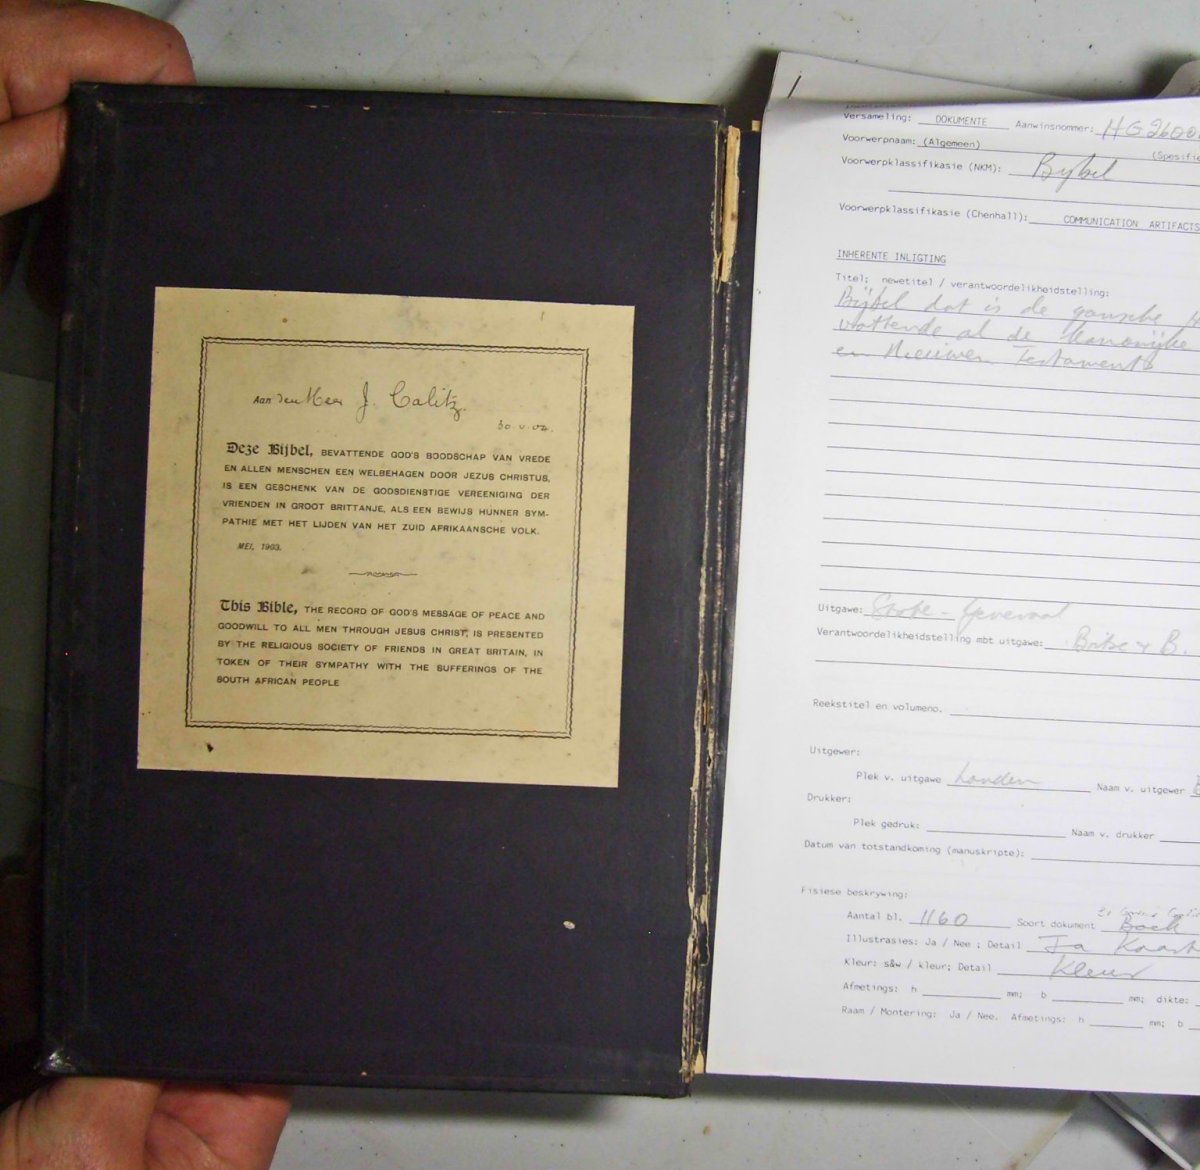 Aan den Heer J. Calitz.
30.V.04.
Deze Bijbel, BEVATTENDE GOD'S BOODSCHAP VAN VREDE
EN ALLEN MENSCHEN EEN WELBEHAGEN DOOR JEZUS CHRISTUS,
IS EEN GESCHENK VAN DE GODSDIENSTIGE VEREENIGING DER
VRIENDEN IN GROOT BRITTANJE, ALS EEN BEWIJS HUNNER SYM-
PATHIE MET HET LIJDEN VAN HET ZUID AFRIKAANSCHE VOLK.
MEI, 1903.
This Bible, THE RECORD OF GOD'S MESSAGE OF PEACE AND
GOODWILL TO ALL MEN THROUGH JESUS CHRIST, IS PRESENTED
BY THE RELIGIOUS SOCIETY OF FRIENDS IN GREAT BRITAIN, IN
TOKEN OF THEIR SYMPATHY WITH THE SUFFERINGS OF THE
SOUTH AFRICAN PEOPLE
Versameling: DOKUMENTE Aanwinsnommer: HG2600
Voorwerpnaam: (Algemeen) (Spesifie
Voorwerpklassifikasie (NKM): Bybel
Voorwerpklassifikasie (Chenhall): COMMUNICATION ARTIFACTS
INHERENTE INLIGTING
Titel; newetitel / verantwoordelikheidstelling:
Bijbel dat is de gansche
vattende al de Kanonijke
en Nieuwen Testaments
Uitgawe: State-Generaal
Verantwoordelikheidstelling mbt uitgawe: Britse & B.
Reekstitel en volumeno.
Uitgewer:
Plek v. uitgawe Londen Naam v. uitgewer
Drukker:
Plek gedruk: Naam v. drukker
Datum van totstandkoming (manuskripte):
Fisiese beskrywing:
Aantal bl. 1160 Soort dokument Boek
Illustrasies: Ja / Nee ; Detail Ja Kaart
Kleur: s&w / kleur; Detail Kleur
Afmetings: h mm; b mm; dikte:
Raam / Montering: Ja / Nee. Afmetings: h mm; b